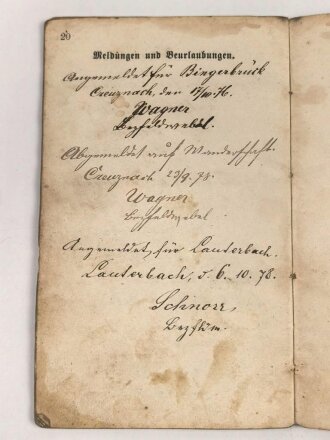 20
Meldungen und Beurlaubungen.
Angemeldet für Bingerbrück
Creuznach, den 17/10 76.
Wagner
Bezfeldwebel.
Abgemeldet auf Wanderschaft.
Creuznach 23/9. 78.
Wagner
Bezfeldwebel
Angemeldet, für Lauterbach.
Lauterbach, d. 6. 10. 78.
Schnorr,